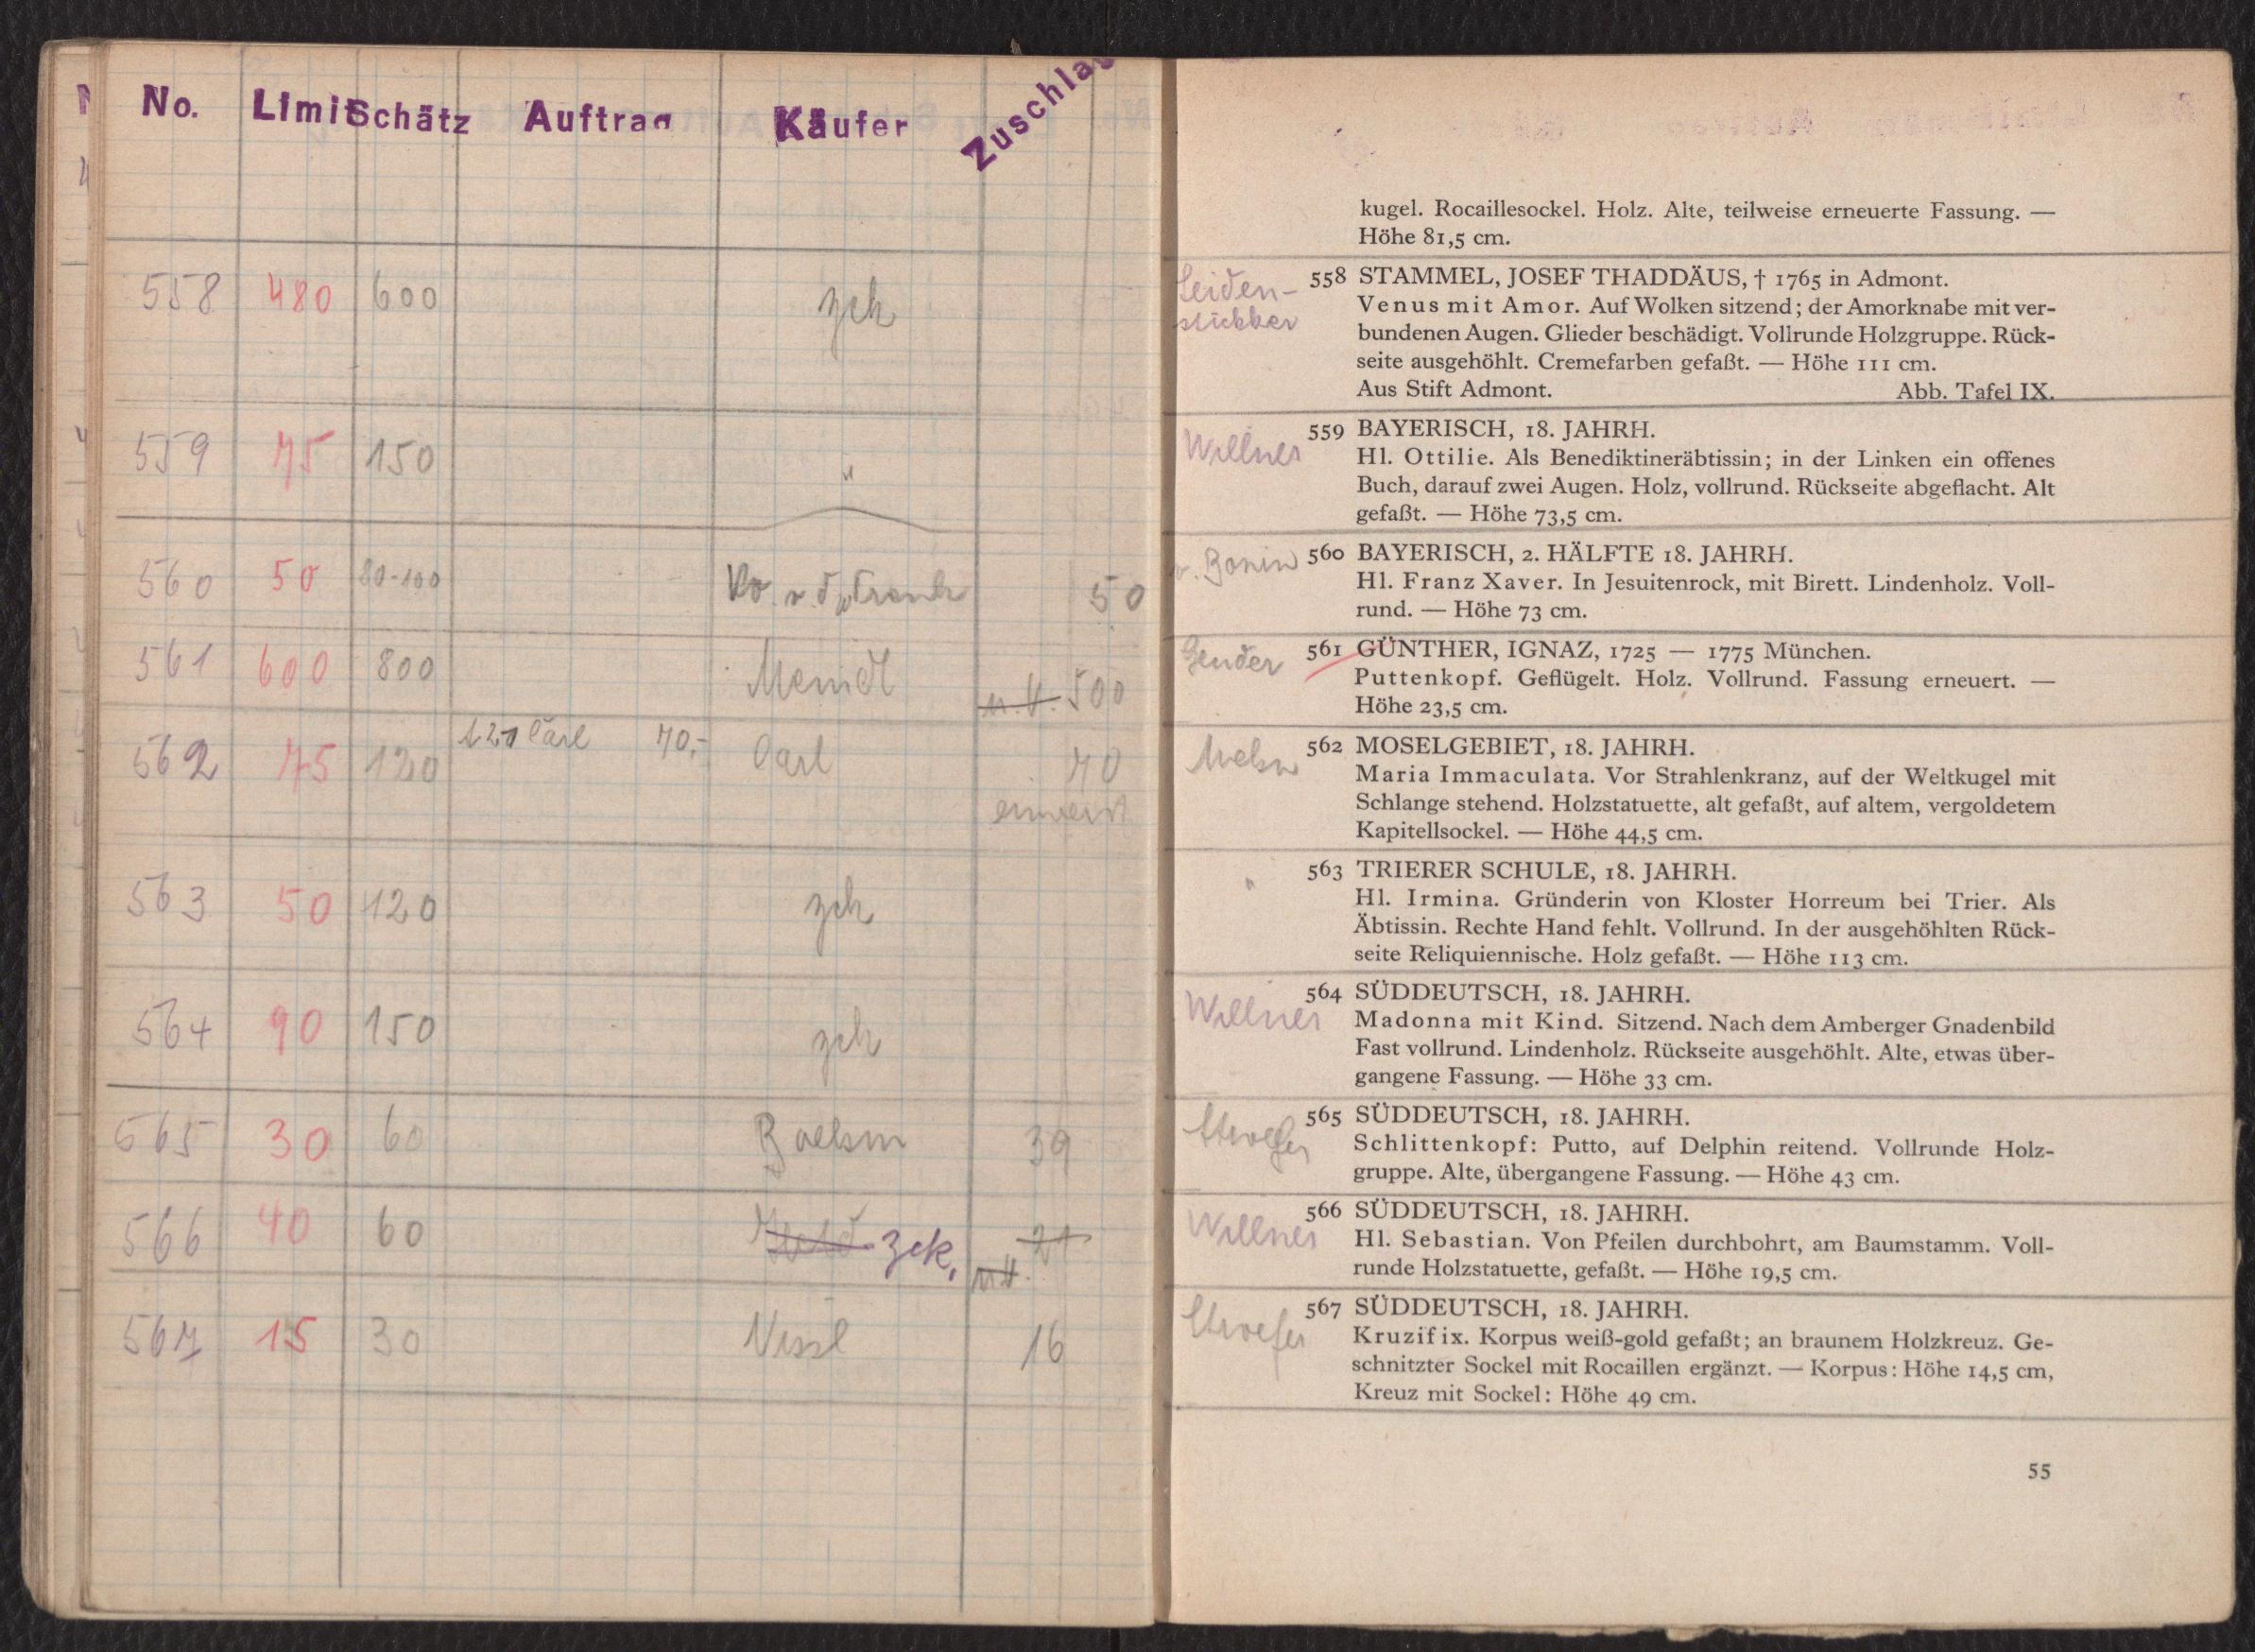 No. Limit Schätz Auftrag Käufer Zuschlag
558 480 600 zck
559 75 150 "
560 50 80-100 50
561 600 800 500
562 75 120 Carl 70.- Carl 70
563 50 120 zck
564 90 150 zck
565 30 60 39
566 40 60 zck. 21
567 15 30 16
kugel. Rocaillesockel. Holz. Alte, teilweise erneuerte Fassung. —
Höhe 81,5 cm.
Seiden-
stücker
558 STAMMEL, JOSEF THADDÄUS, † 1765 in Admont.
Venus mit Amor. Auf Wolken sitzend; der Amorknabe mit ver-
bundenen Augen. Glieder beschädigt. Vollrunde Holzgruppe. Rück-
seite ausgehöhlt. Cremefarben gefaßt. — Höhe 111 cm.
Aus Stift Admont. Abb. Tafel IX.
Wellner 559 BAYERISCH, 18. JAHRH.
Hl. Ottilie. Als Benediktineräbtissin; in der Linken ein offenes
Buch, darauf zwei Augen. Holz, vollrund. Rückseite abgeflacht. Alt
gefaßt. — Höhe 73,5 cm.
v. Bonin 560 BAYERISCH, 2. HÄLFTE 18. JAHRH.
Hl. Franz Xaver. In Jesuitenrock, mit Birett. Lindenholz. Voll-
rund. — Höhe 73 cm.
Gender 561 GÜNTHER, IGNAZ, 1725 — 1775 München.
Puttenkopf. Geflügelt. Holz. Vollrund. Fassung erneuert. —
Höhe 23,5 cm.
562 MOSELGEBIET, 18. JAHRH.
Maria Immaculata. Vor Strahlenkranz, auf der Weltkugel mit
Schlange stehend. Holzstatuette, alt gefaßt, auf altem, vergoldetem
Kapitellsockel. — Höhe 44,5 cm.
563 TRIERER SCHULE, 18. JAHRH.
Hl. Irmina. Gründerin von Kloster Horreum bei Trier. Als
Äbtissin. Rechte Hand fehlt. Vollrund. In der ausgehöhlten Rück-
seite Reliquiennische. Holz gefaßt. — Höhe 113 cm.
Wellner 564 SÜDDEUTSCH, 18. JAHRH.
Madonna mit Kind. Sitzend. Nach dem Amberger Gnadenbild
Fast vollrund. Lindenholz. Rückseite ausgehöhlt. Alte, etwas über-
gangene Fassung. — Höhe 33 cm.
565 SÜDDEUTSCH, 18. JAHRH.
Schlittenkopf: Putto, auf Delphin reitend. Vollrunde Holz-
gruppe. Alte, übergangene Fassung. — Höhe 43 cm.
Wellner 566 SÜDDEUTSCH, 18. JAHRH.
Hl. Sebastian. Von Pfeilen durchbohrt, am Baumstamm. Voll-
runde Holzstatuette, gefaßt. — Höhe 19,5 cm.
567 SÜDDEUTSCH, 18. JAHRH.
Kruzifix. Korpus weiß-gold gefaßt; an braunem Holzkreuz. Ge-
schnitzter Sockel mit Rocaillen ergänzt. — Korpus: Höhe 14,5 cm,
Kreuz mit Sockel: Höhe 49 cm.
55